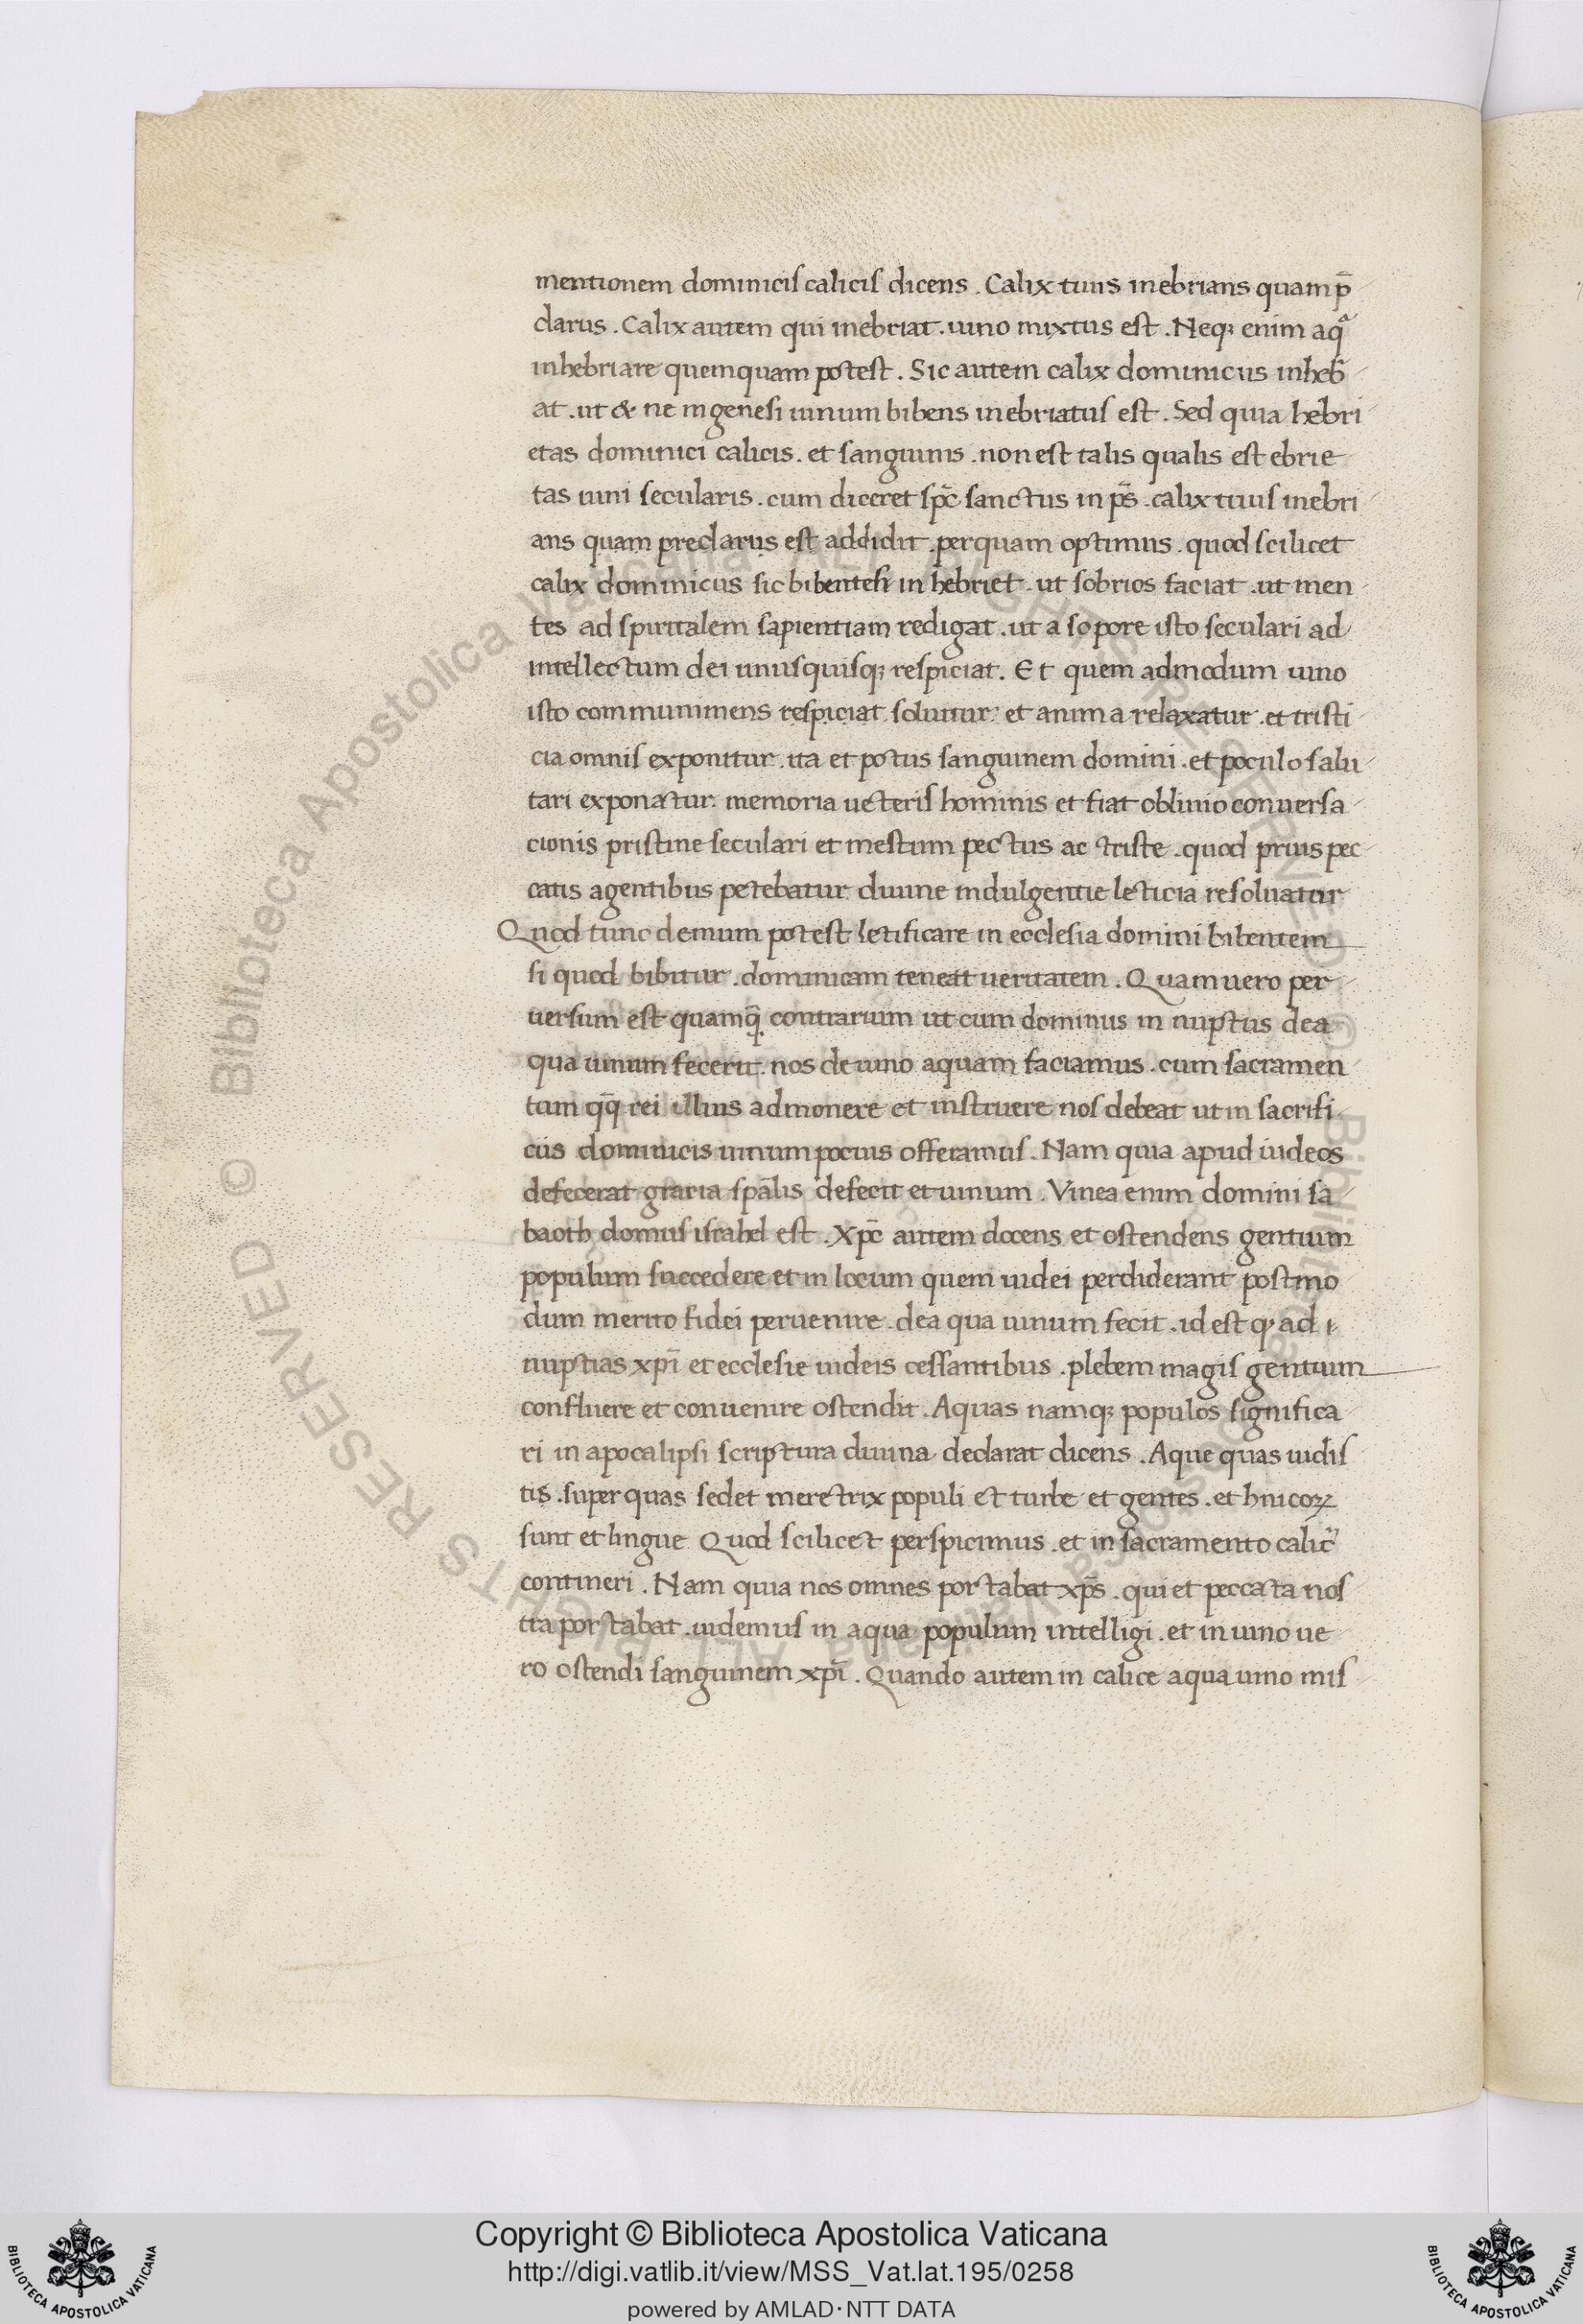 mentionem dominicis calicis dicens . Calix tuus inebrians quam p̄
clarus . Calix autem qui inebriat . uino mixtus est . Neqꝫ enim aqᷓ
inhebriare quemquam potest . Sic autem calix dominicus inheb͛
at . ut & ne in genesi uinum bibens inebriatus est . Sed quia hebri
etas dominici calicis . et sanguinis . non est talis qualis est ebrie
tas uini secularis . cum diceret sp̄c sanctus in p̄s . calix tuus inebri
ans quam preclarus est addidit . perquam optimus . quod scilicet
calix dominicus sic bibentesi in hebriet . ut sobrios faciat . ut men
tes ad spiritalem sapientiam redigat . ut a sopore isto seculari ad
intellectum dei unusquisqꝫ respiciat . Et quem admodum uino
isto communi mens respiciat soluitur . et anima relaxatur . et tristi
cia omnis exponitur . ita et potus sanguinem domini . et poculo salu
tari exponatur . memoria ueteris hominis et fiat obliuio conuersa
cionis pristine seculari et mestum pectus ac triste . quod prius pec
catis agentibus petebatur diuine indulgentie leticia resoluatur
Quod tunc demum potest letificare in ecclesia domini bibentem
si quod bibitur . dominicam teneat ueritatem . Quam uero per
uersum est quamqͥ contrarium ut cum dominus in nuptiis dea
qua uinum fecerit . nos de uino aquam faciamus . cum sacramen
tum qq̄ rei illius admonere et instruere nos debeat ut in sacrifi
ciis dominicis uinum pocius offeramus . Nam quia apud iudeos
defecerat gratia sp̄alis defecit et uinum . Vinea enim domini sa
baoth domus israhel est . Xp̄c autem docens et ostendens gentium
populum succedere et in locum quem iudei perdiderant postmo
dum merito fidei peruenire . dea qua uinum fecit . id est ꝙ ad
nuptias xp̄i et ecclesie iudeis cessantibus . plebem magis gentium
confluere et conuenire ostendit . Aquas namqꝫ populos significa
ri in apocalipsi scriptura diuina declarat dicens . Aque quas uidis
tis . super quas sedet meretrix populi et turbe et gentes . et hnicoꝝ
sunt et lingue Quod scilicet perspicimus . et in sacramento calic͛
contineri . Nam quia nos omnes portabat xp̄s . qui et peccata nos
tra portabat . uidemus in aqua populum intelligi . et in uino ue
ro ostendi sanguinem xp̄i . Quando autem in calice aqua uino mis
© Biblioteca Apostolica Vaticana ALL RIGHTS RESERVED
© Biblioteca Apostolica Vaticana ALL RIGHTS RESERVED
Copyright © Biblioteca Apostolica Vaticana
http://digi.vatlib.it/view/MSS_Vat.lat.195/0258
powered by AMLAD·NTT DATA
BIBLIOTECA APOSTOLICA VATICANA
BIBLIOTECA APOSTOLICA VATICANA